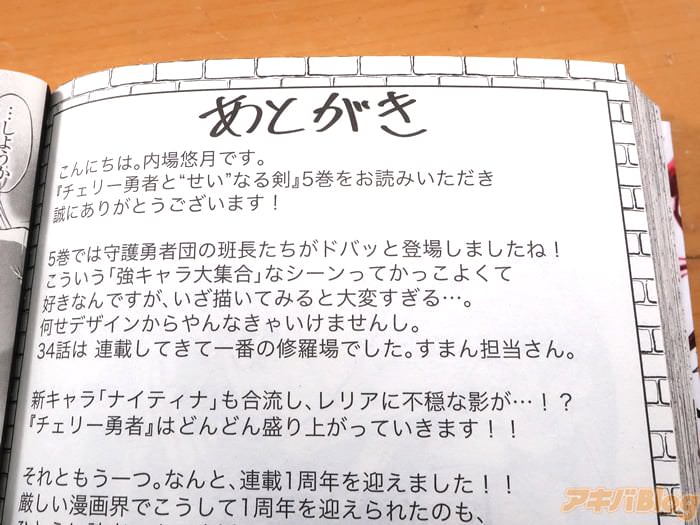 …しようか
あとがき
こんにちは。内場悠月です。
『チェリー勇者と“せい”なる剣』5巻をお読みいただき
誠にありがとうございます！
5巻では守護勇者団の班長たちがドバッと登場しましたね！
こういう「強キャラ大集合」なシーンってかっこよくて
好きなんですが、いざ描いてみると大変すぎる…。
何せデザインからやんなきゃいけませんし。
34話は 連載してきて一番の修羅場でした。すまん担当さん。
新キャラ「ナイティナ」も合流し、レリアに不穏な影が…！？
『チェリー勇者』はどんどん盛り上がっていきます！！
それともう一つ。なんと、連載1周年を迎えました！！
厳しい漫画界でこうして1周年を迎えられたのも、
アキバBlog